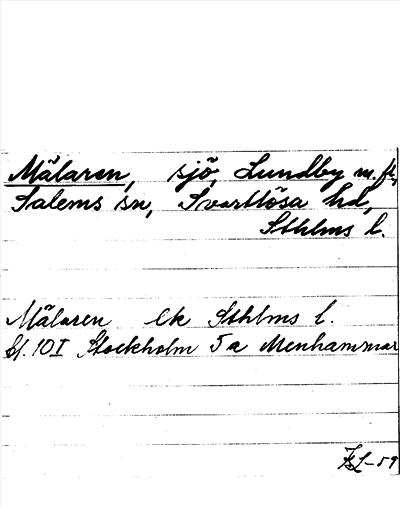 Mälaren, sjö, Lundby m.fl,
Salems sn, Svartlösa hd,
Sthlms l.
Mälaren ek Sthlms l.
bl. 10 I Stockholm 5 a Menhammar
-59